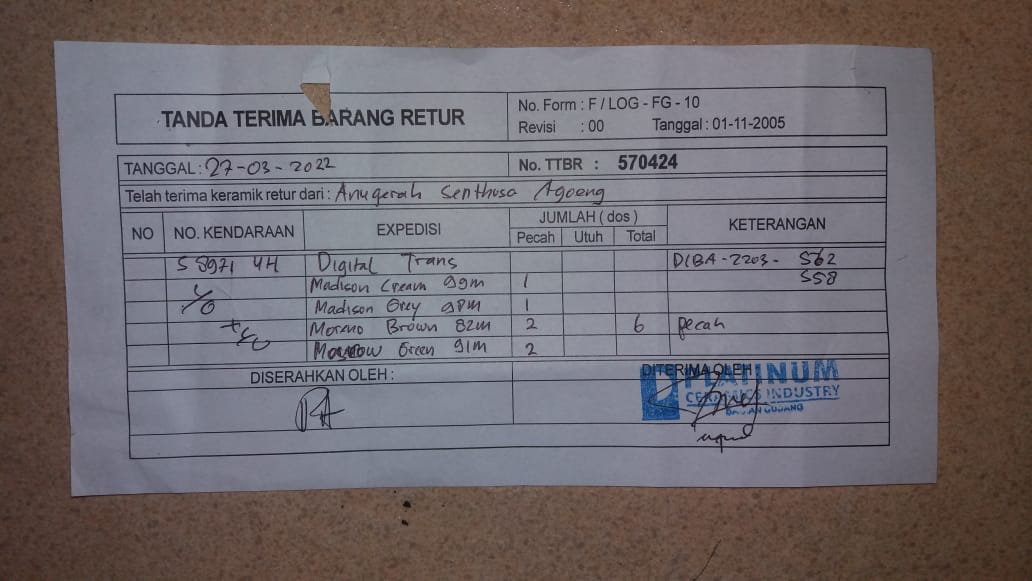 TANDA TERIMA BARANG RETUR
No. Form : F / LOG - FG - 10
Revisi : 00 Tanggal : 01-11-2005
TANGGAL : 27-03-2022 No. TTBR : 570424
Telah terima keramik retur dari : Anugerah Senthosa Agoeng
NO NO. KENDARAAN EXPEDISI JUMLAH ( dos ) KETERANGAN
Pecah Utuh Total
S 8971 UH Digital Trans DIBA-2203- 562
Madison Cream 99m 1 558
Madison Grey 98m 1
Moreno Brown 82m 2 6 pecah
Green 91m 2
DISERAHKAN OLEH : DITERIMA OLEH :
PLATINUM
CERAMICS INDUSTRY
BAGIAN GUDANG